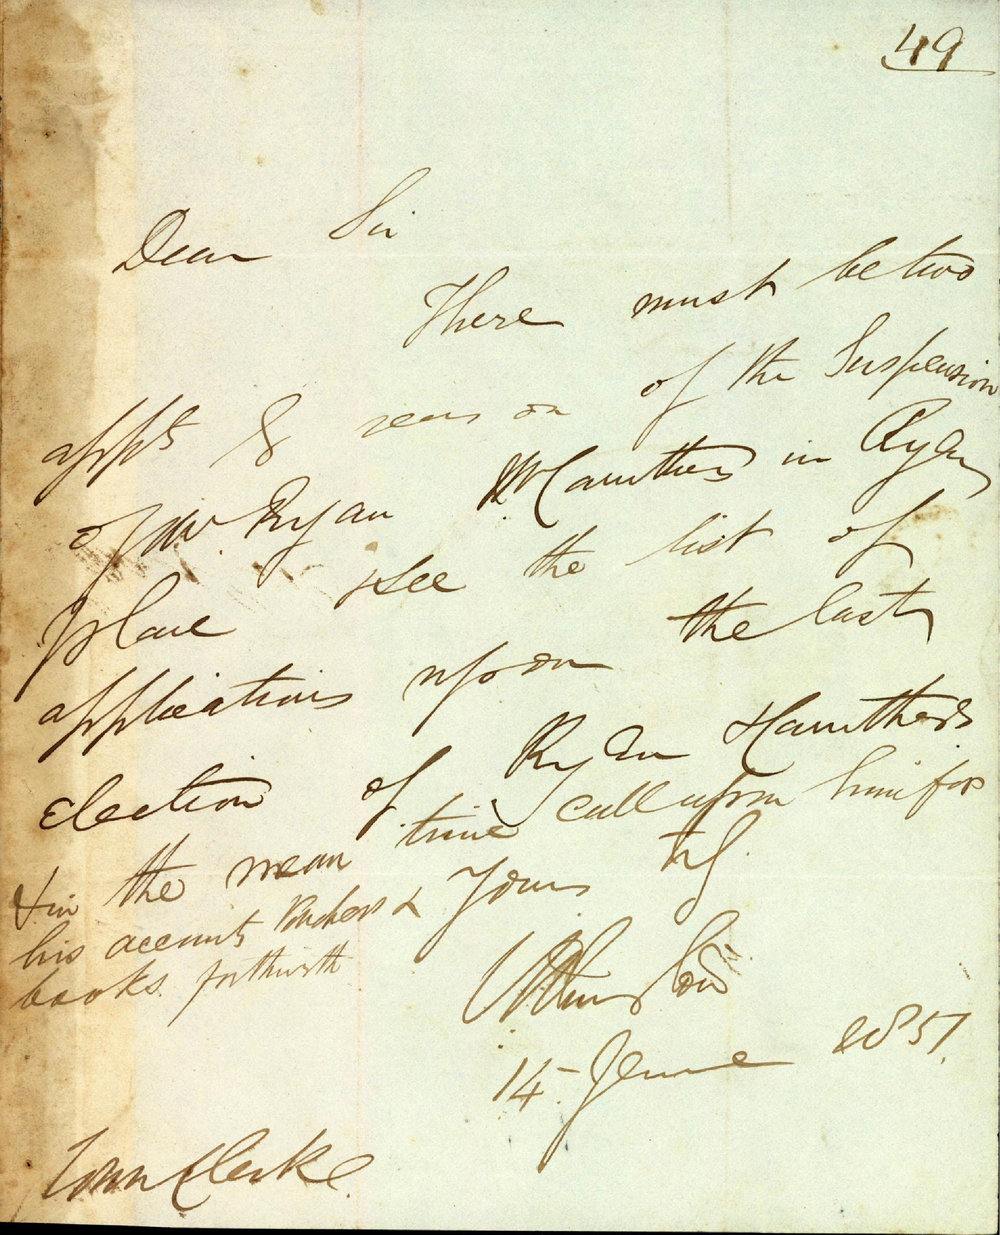 49
Dear Sir
There must be two
appts & reason of the Suspension
of Mr Ryan in Ryan
place & see the list of
applications upon the last
election of Ryan
& in the mean time call upon him for
his accounts Vouchers &
books forthwith
Yours
14 June 1851.
Town Clerke.